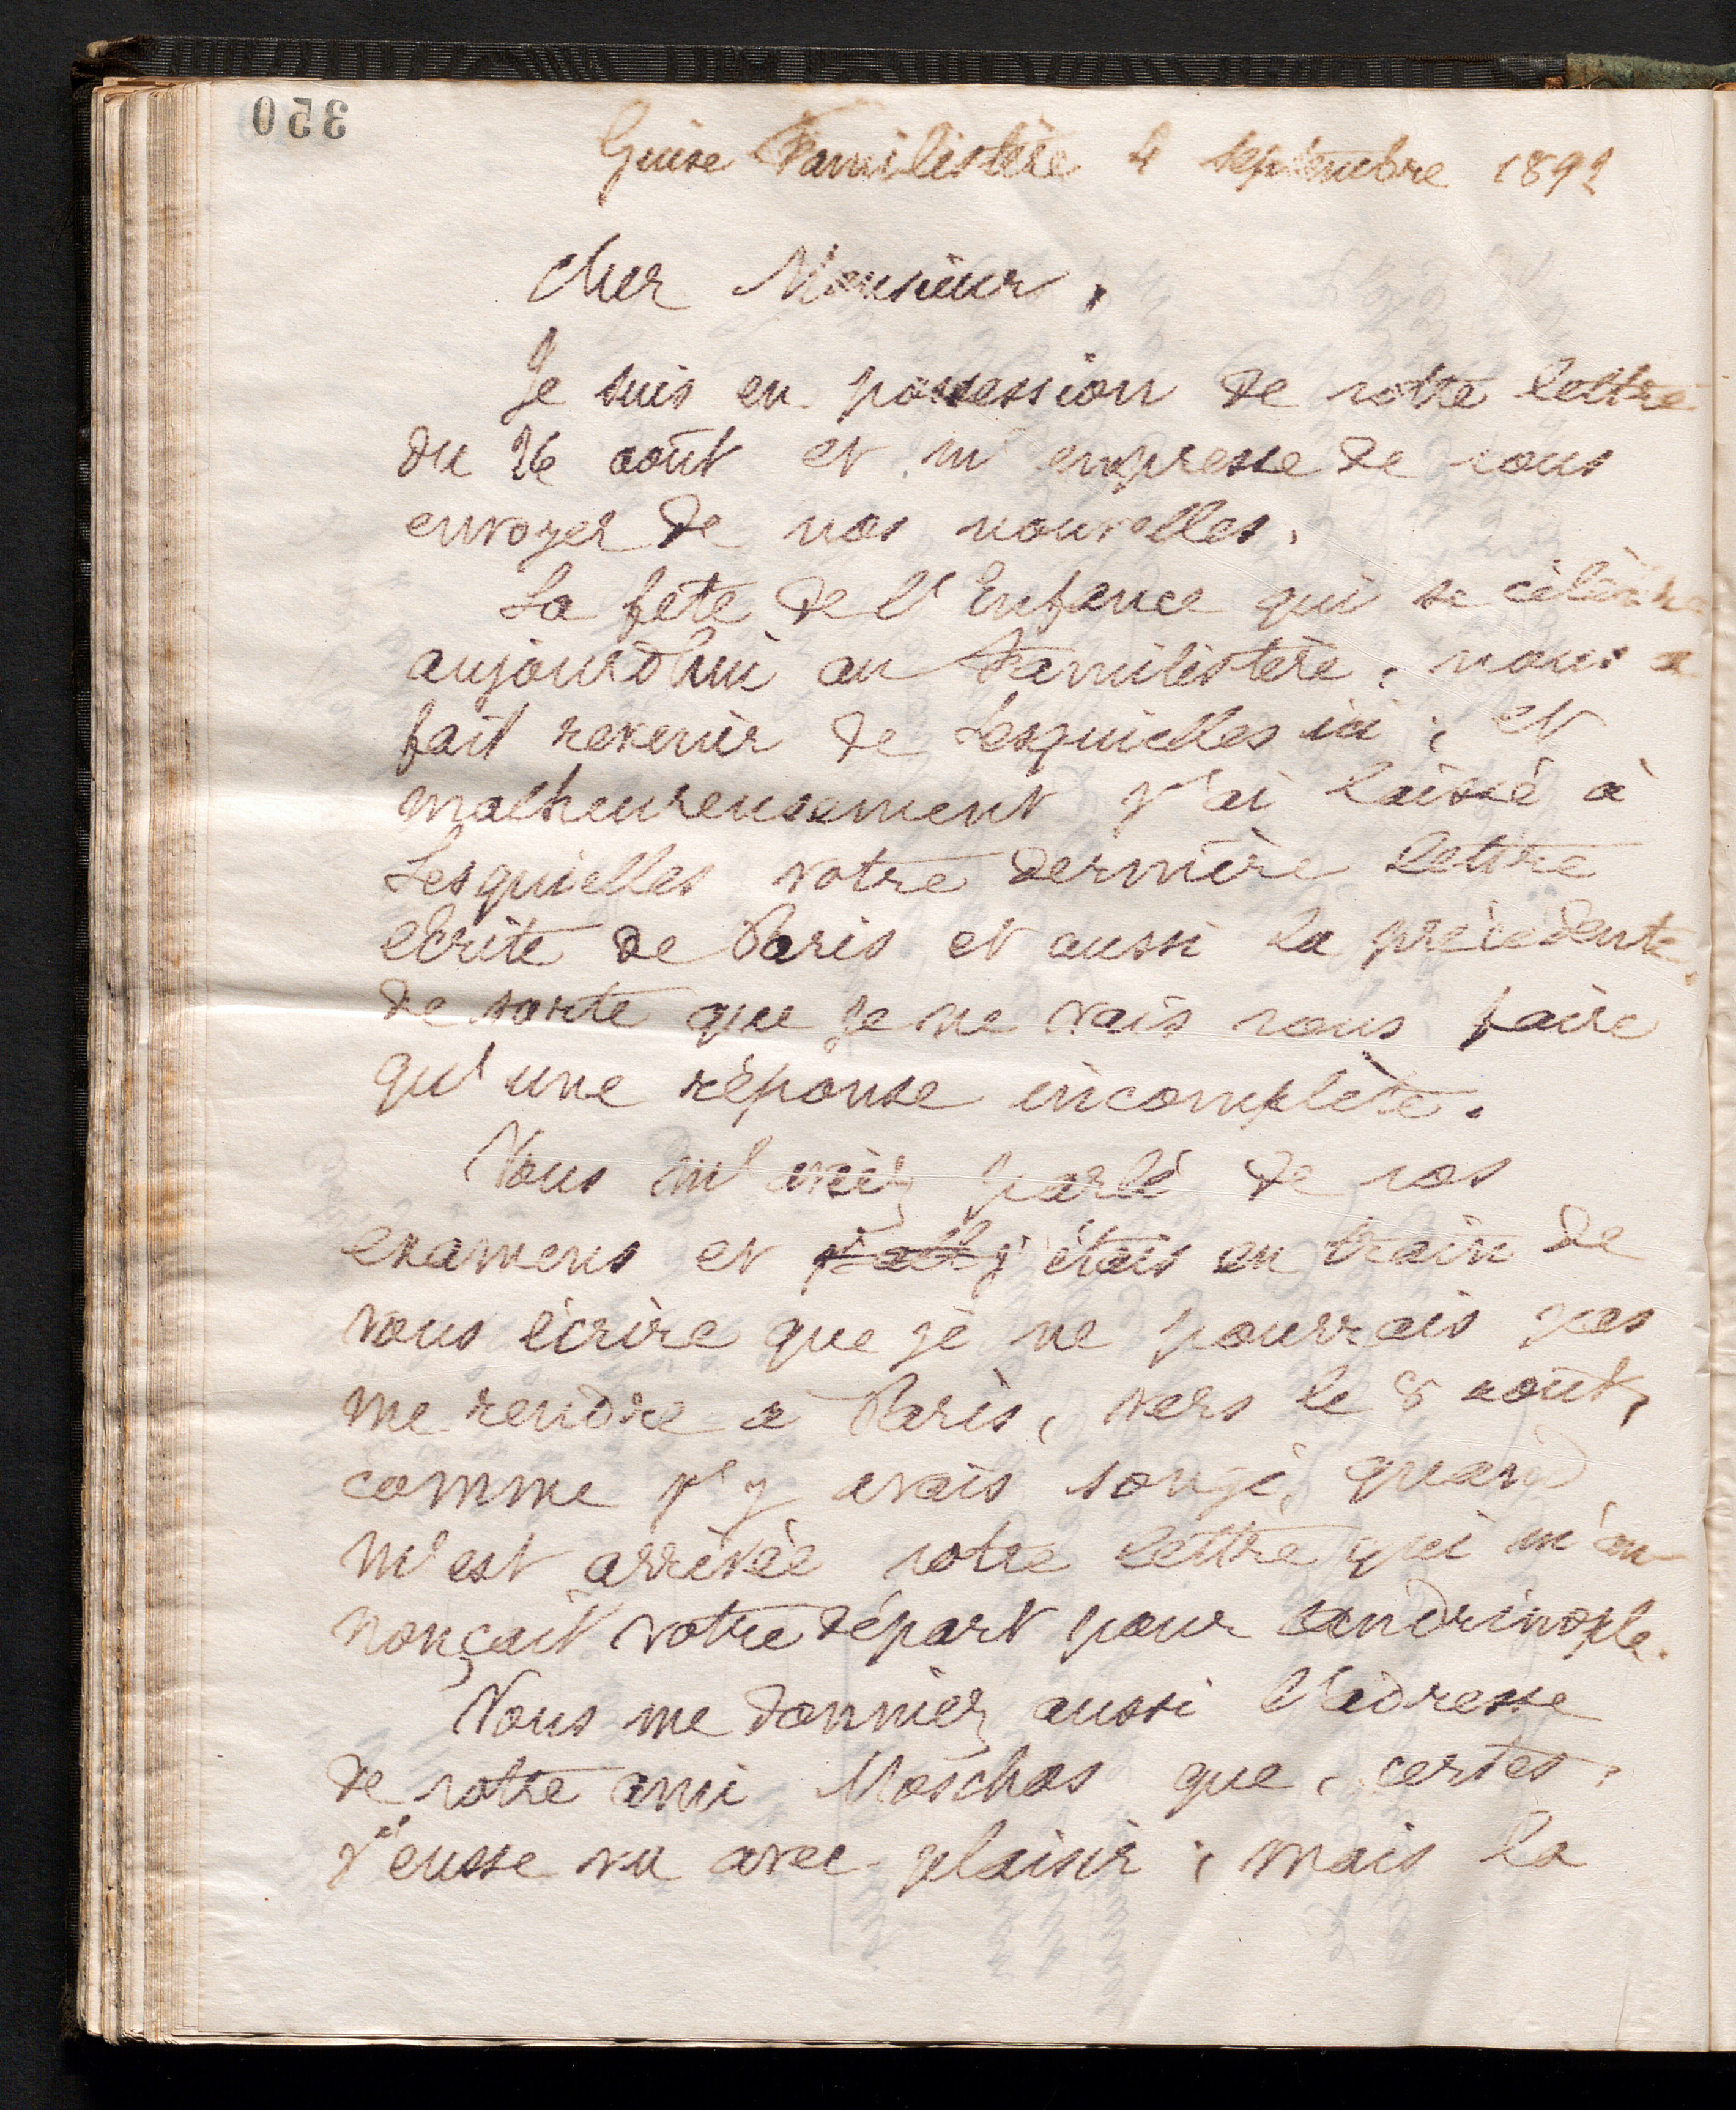 350
Guise Familistère 4 septembre 1892
Cher Monsieur,
Je suis en possession de votre lettre
du 26 août et m'empresse de vous
envoyer de nos nouvelles.
La fête de l'Enfance qui se célèbre
aujourd'hui au Familistère, nous a
fait revenir de Lesquielles ici, et
malheureusement j'ai laissé à
Lesquielles votre dernière lettre
écrite de Paris et aussi la précédente,
de sorte que je ne vais vous faire
qu'une réponse incomplète.
Vous m'aviez parlé de vos
examens et j'étais en train de
vous écrire que je ne pourrais pas
me rendre à Paris, vers le 8 août,
comme j'y avais songé, quand
m'est arrivée votre lettre qui m'an-
nonçait votre départ pour Andrinople.
Vous me donniez aussi l'adresse
de votre ami Moschos que, certes,
j'eusse vu avec plaisir ; mais la